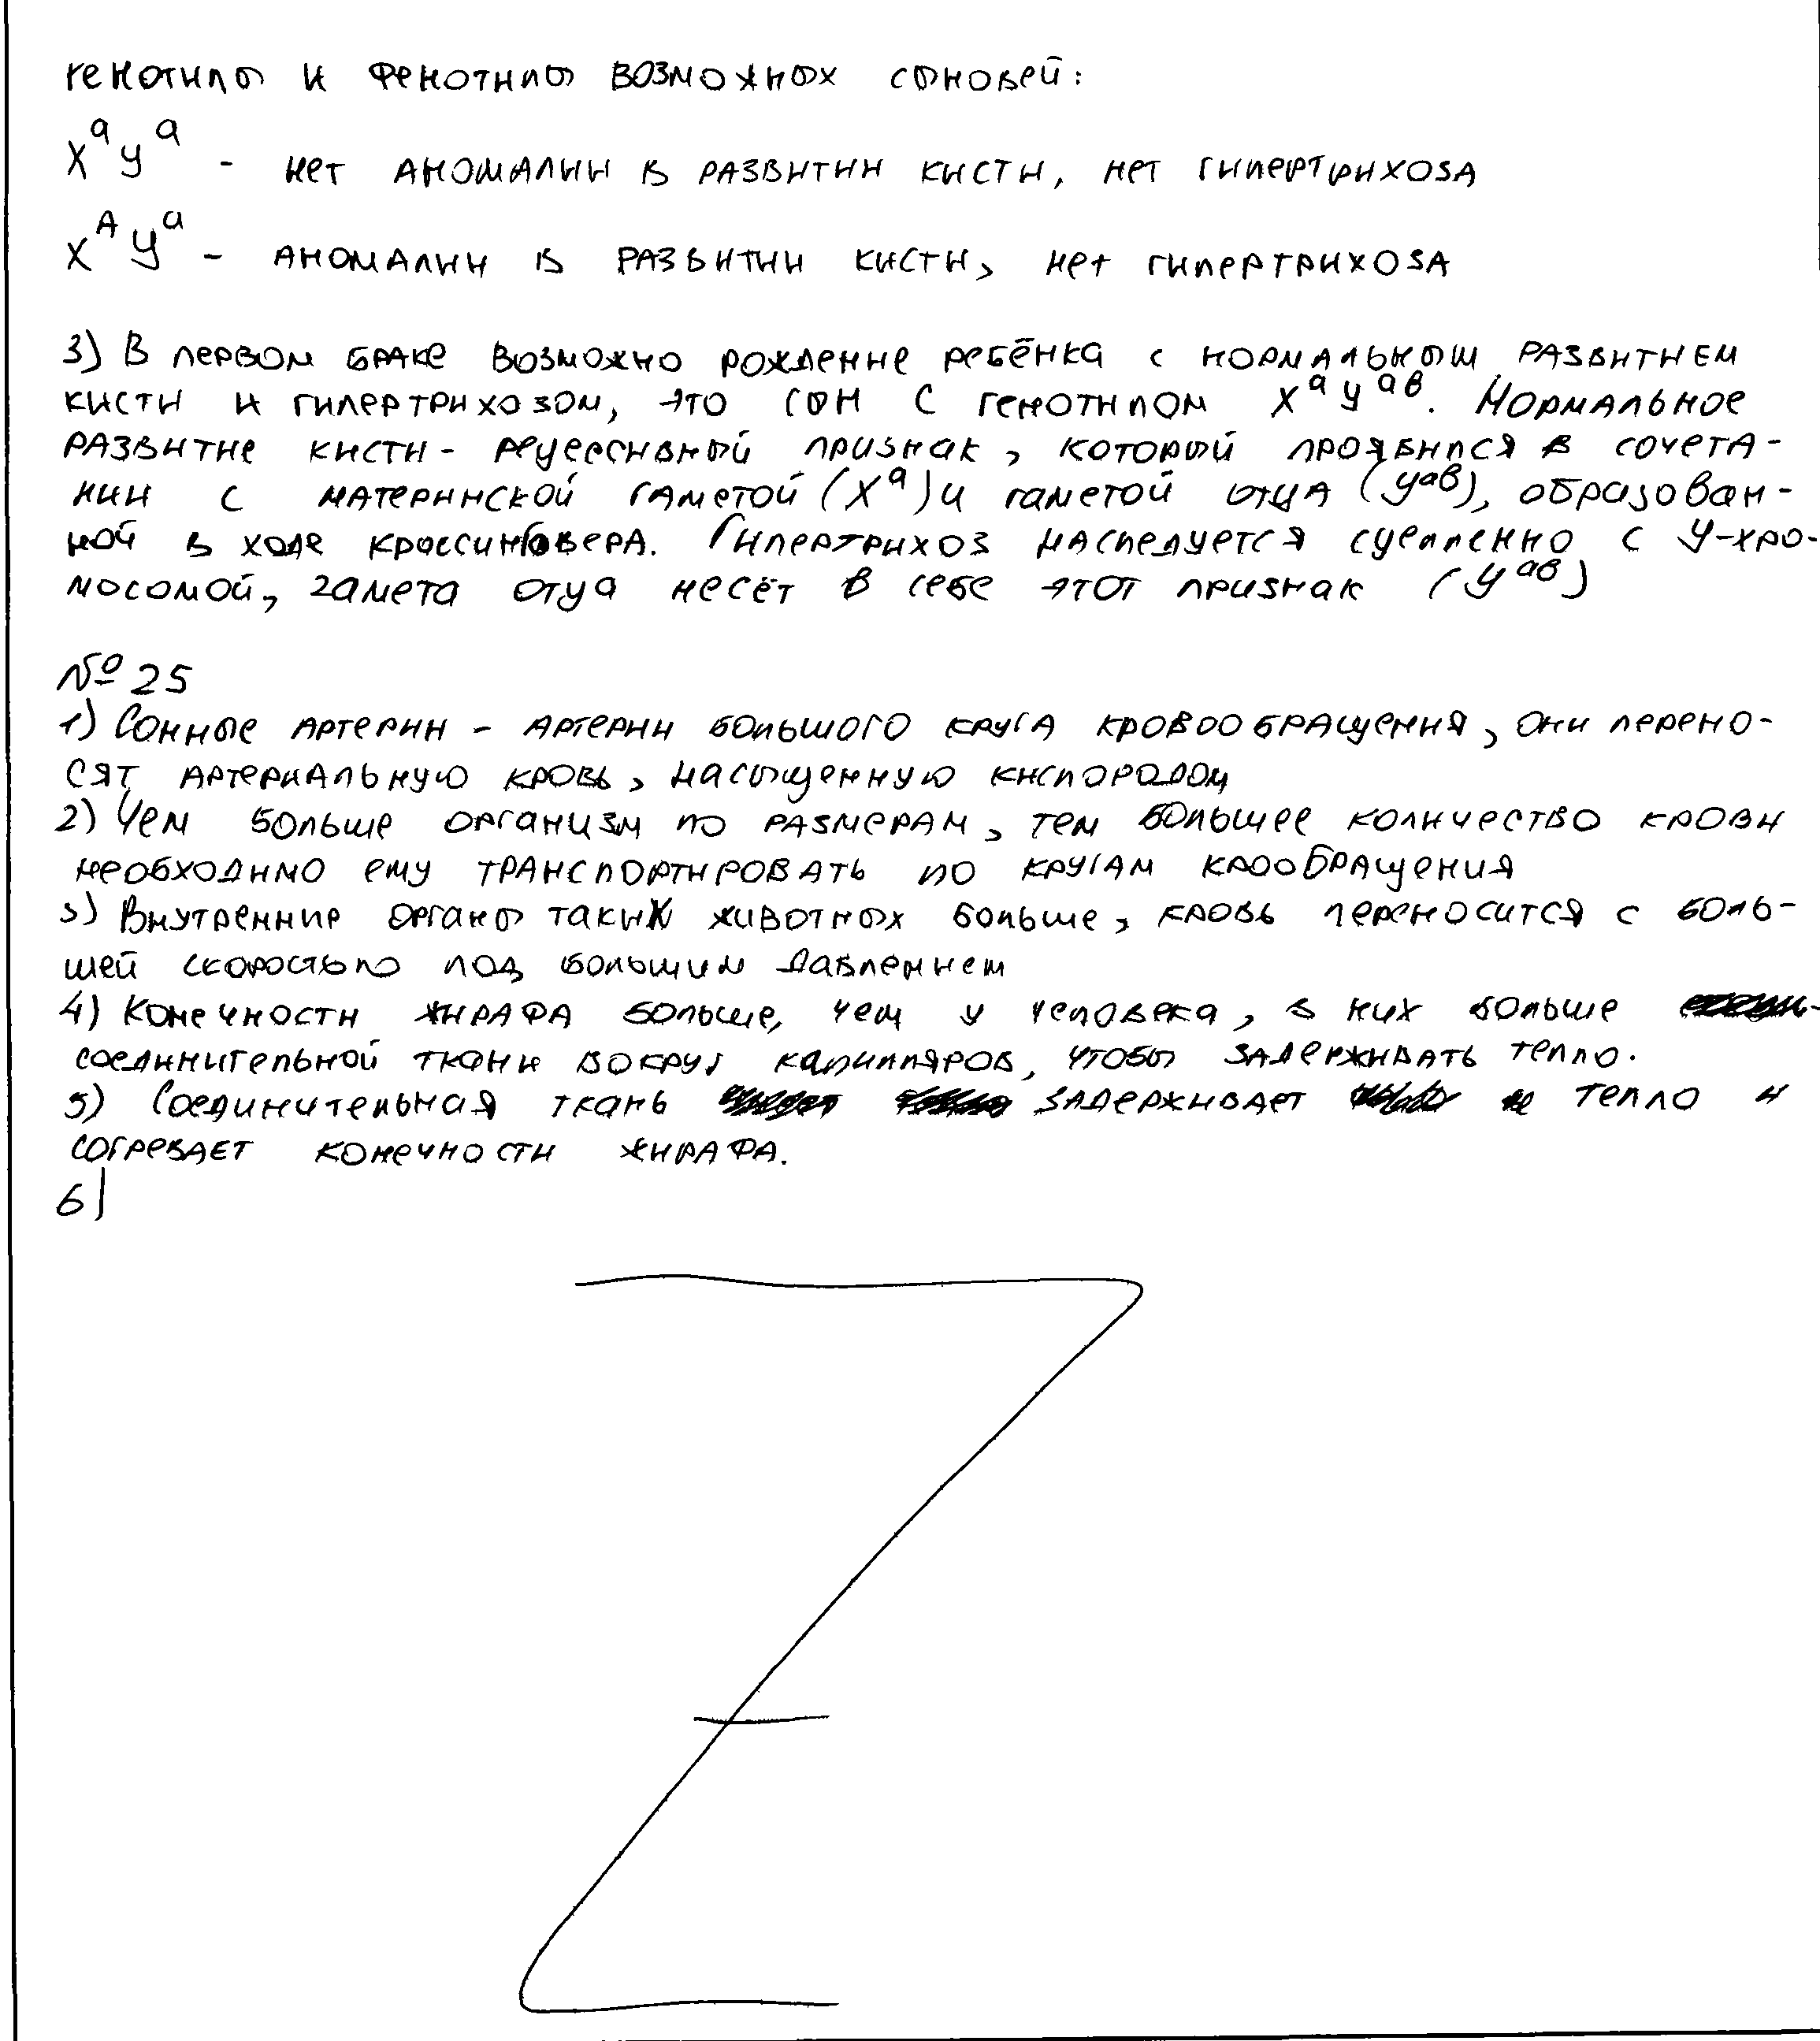 Генотипы и фенотипы возможных сыновей:
X^a y^a - нет аномалии в развитии кисти, нет гипертрихоза
X^A y^a - аномалии в развитии кисти, нет гипертрихоза
3) В первом браке возможно рождение ребёнка с нормальным развитием
кисти и гипертрихозом, это сын с генотипом X^a y^ав. Нормальное
развитие кисти - рецессивный признак, который проявился в сочета-
нии с материнской гаметой (X^a) и гаметой отца (y^ав), образован-
ной в ходе кроссинговера. Гипертрихоз наследуется сцепленно с У-хро-
мосомой, гамета отца несёт в себе этот признак (y^ав)
№ 25
1) Сонные артерии - артерии большого круга кровообращения, они перено-
сят артериальную кровь, насыщенную кислородом
2) Чем больше организм по размерам, тем большее количество крови
необходимо ему транспортировать по кругам крообращения
3) Внутренние органы таких животных больше, кровь переносится с боль-
шей скоростью под большим давлением
4) Конечности жирафа больше, чем у человека, в них больше
соединительной ткани вокруг капилляров, чтобы задерживать тепло.
5) Соединительная ткань задерживает тепло и
согревает конечности жирафа.
6)